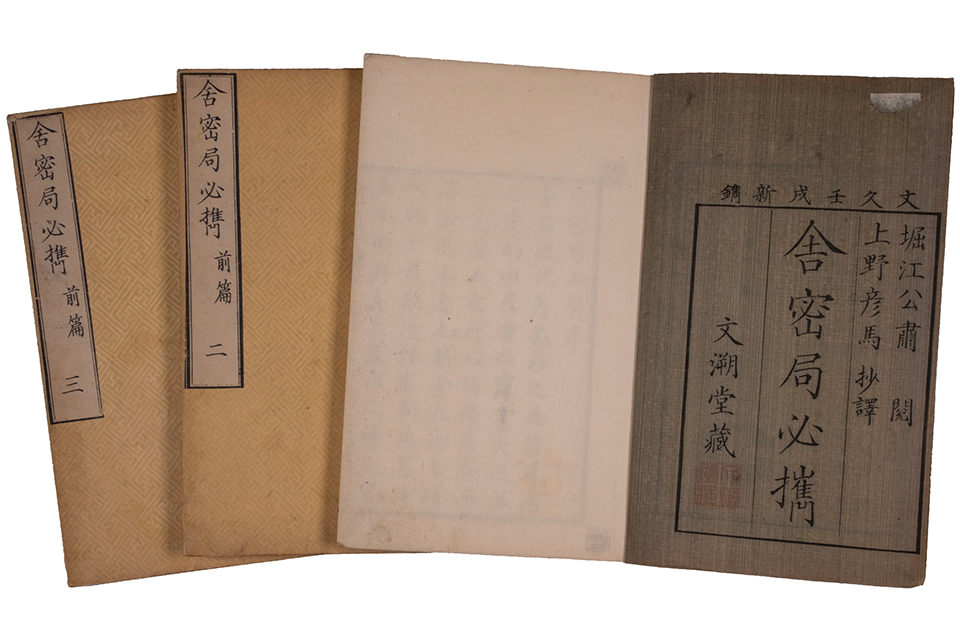 文久壬戌新鐫
堀江公肅 閲
上野彦馬 抄譯
舎密局必携
文溯堂藏
舎密局必携 前篇 二
舎密局必携 前篇 三